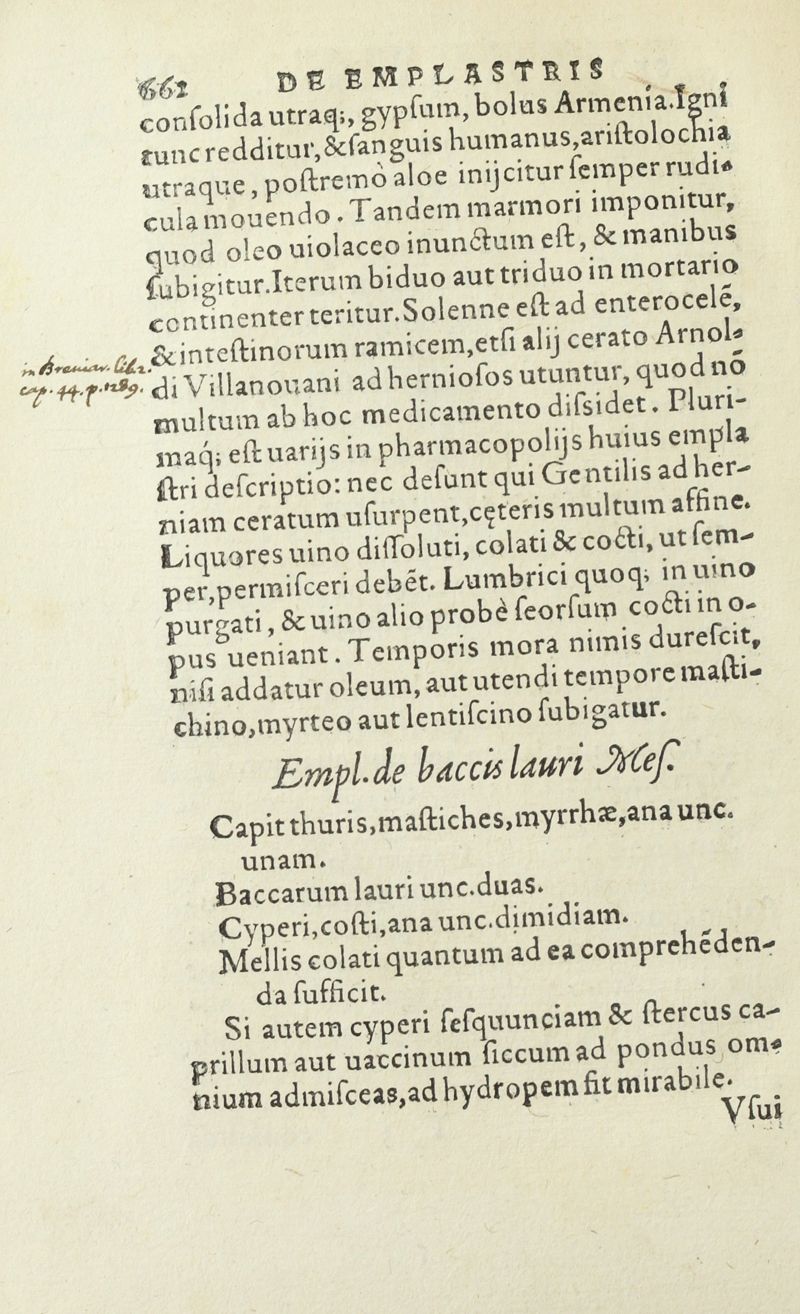 662 DE EMPLASTRIS
conſolida utraq;, gypſum, bolus Armenia. Igni
tunc redditur, & ſanguis humanus, ariſtolochia
utraque, poſtremò aloe inijcitur ſemper rudi-
cula mouendo. Tandem marmori imponitur,
quod oleo uiolaceo inunctum eſt, & manibus
ſubigitur. Iterum biduo aut triduo in mortario
continenter teritur. Solenne eſt ad enterocele,
& inteſtinorum ramicem, etſi alij cerato Arnol-
di Villanouani ad herniofos utuntur, quod nō
multum ab hoc medicamento diſsidet. Pluri-
maq; eſt uarijs in pharmacopolijs huius empla
ſtri deſcriptio: nec deſunt qui Gentilis ad her-
niam ceratum uſurpent, cęteris multum affine.
Liquores uino diſſoluti, colati & cocti, ut ſem-
per, permiſceri debēt. Lumbrici quoq; in uino
purgati, & uino alio probè ſeorſum cocti in o-
pus ueniant. Temporis mora nimis dureſcit,
niſi addatur oleum, aut utendi tempore maſti-
chino, myrteo aut lentiſcino ſubigatur.
Empl. de baccis lauri Meſ.
Capit thuris, maſtiches, myrrhæ, ana unc.
unam.
Baccarum lauri unc. duas.
Cyperi, coſti, ana unc. dimidiam.
Mellis colati quantum ad ea comprehēden-
da ſufficit.
Si autem cyperi ſeſquunciam & ſtercus ca-
prillum aut uaccinum ſiccum ad pondus om-
nium admiſceas, ad hydropem fit mirabile.
Vſui